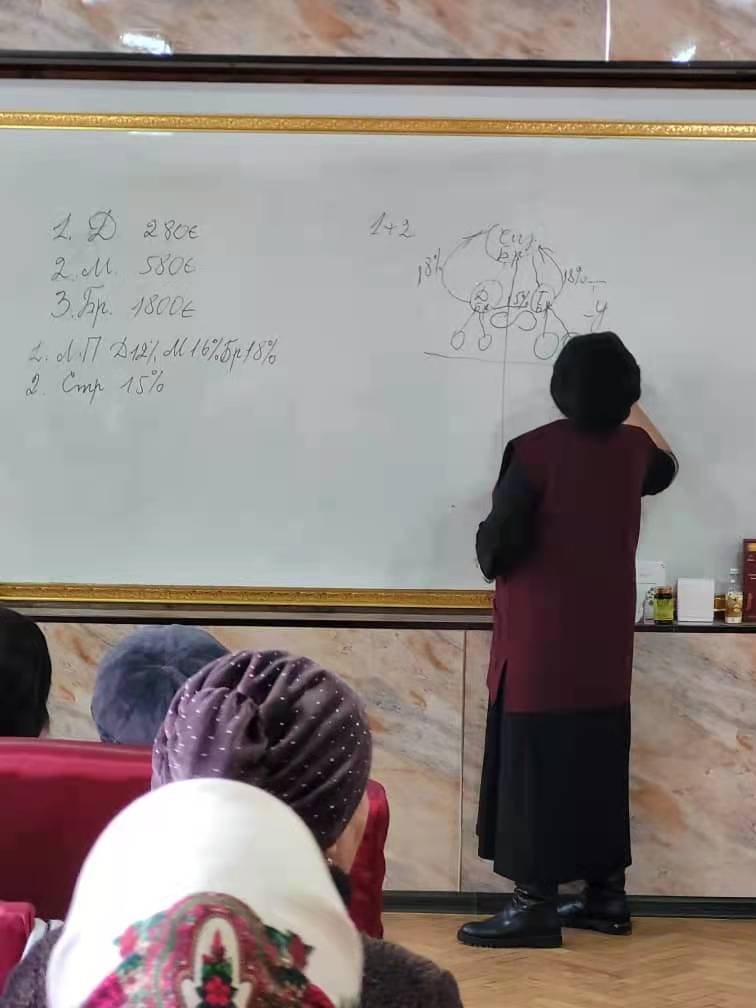 1. Д. 280€
2. М. 580€
3. Бр. 1800€
1. Л.П Д12% М16% Бр18%
2. Стр 15%
1+2
Бр.
18%
18%
Д
Бр
15%
Бр